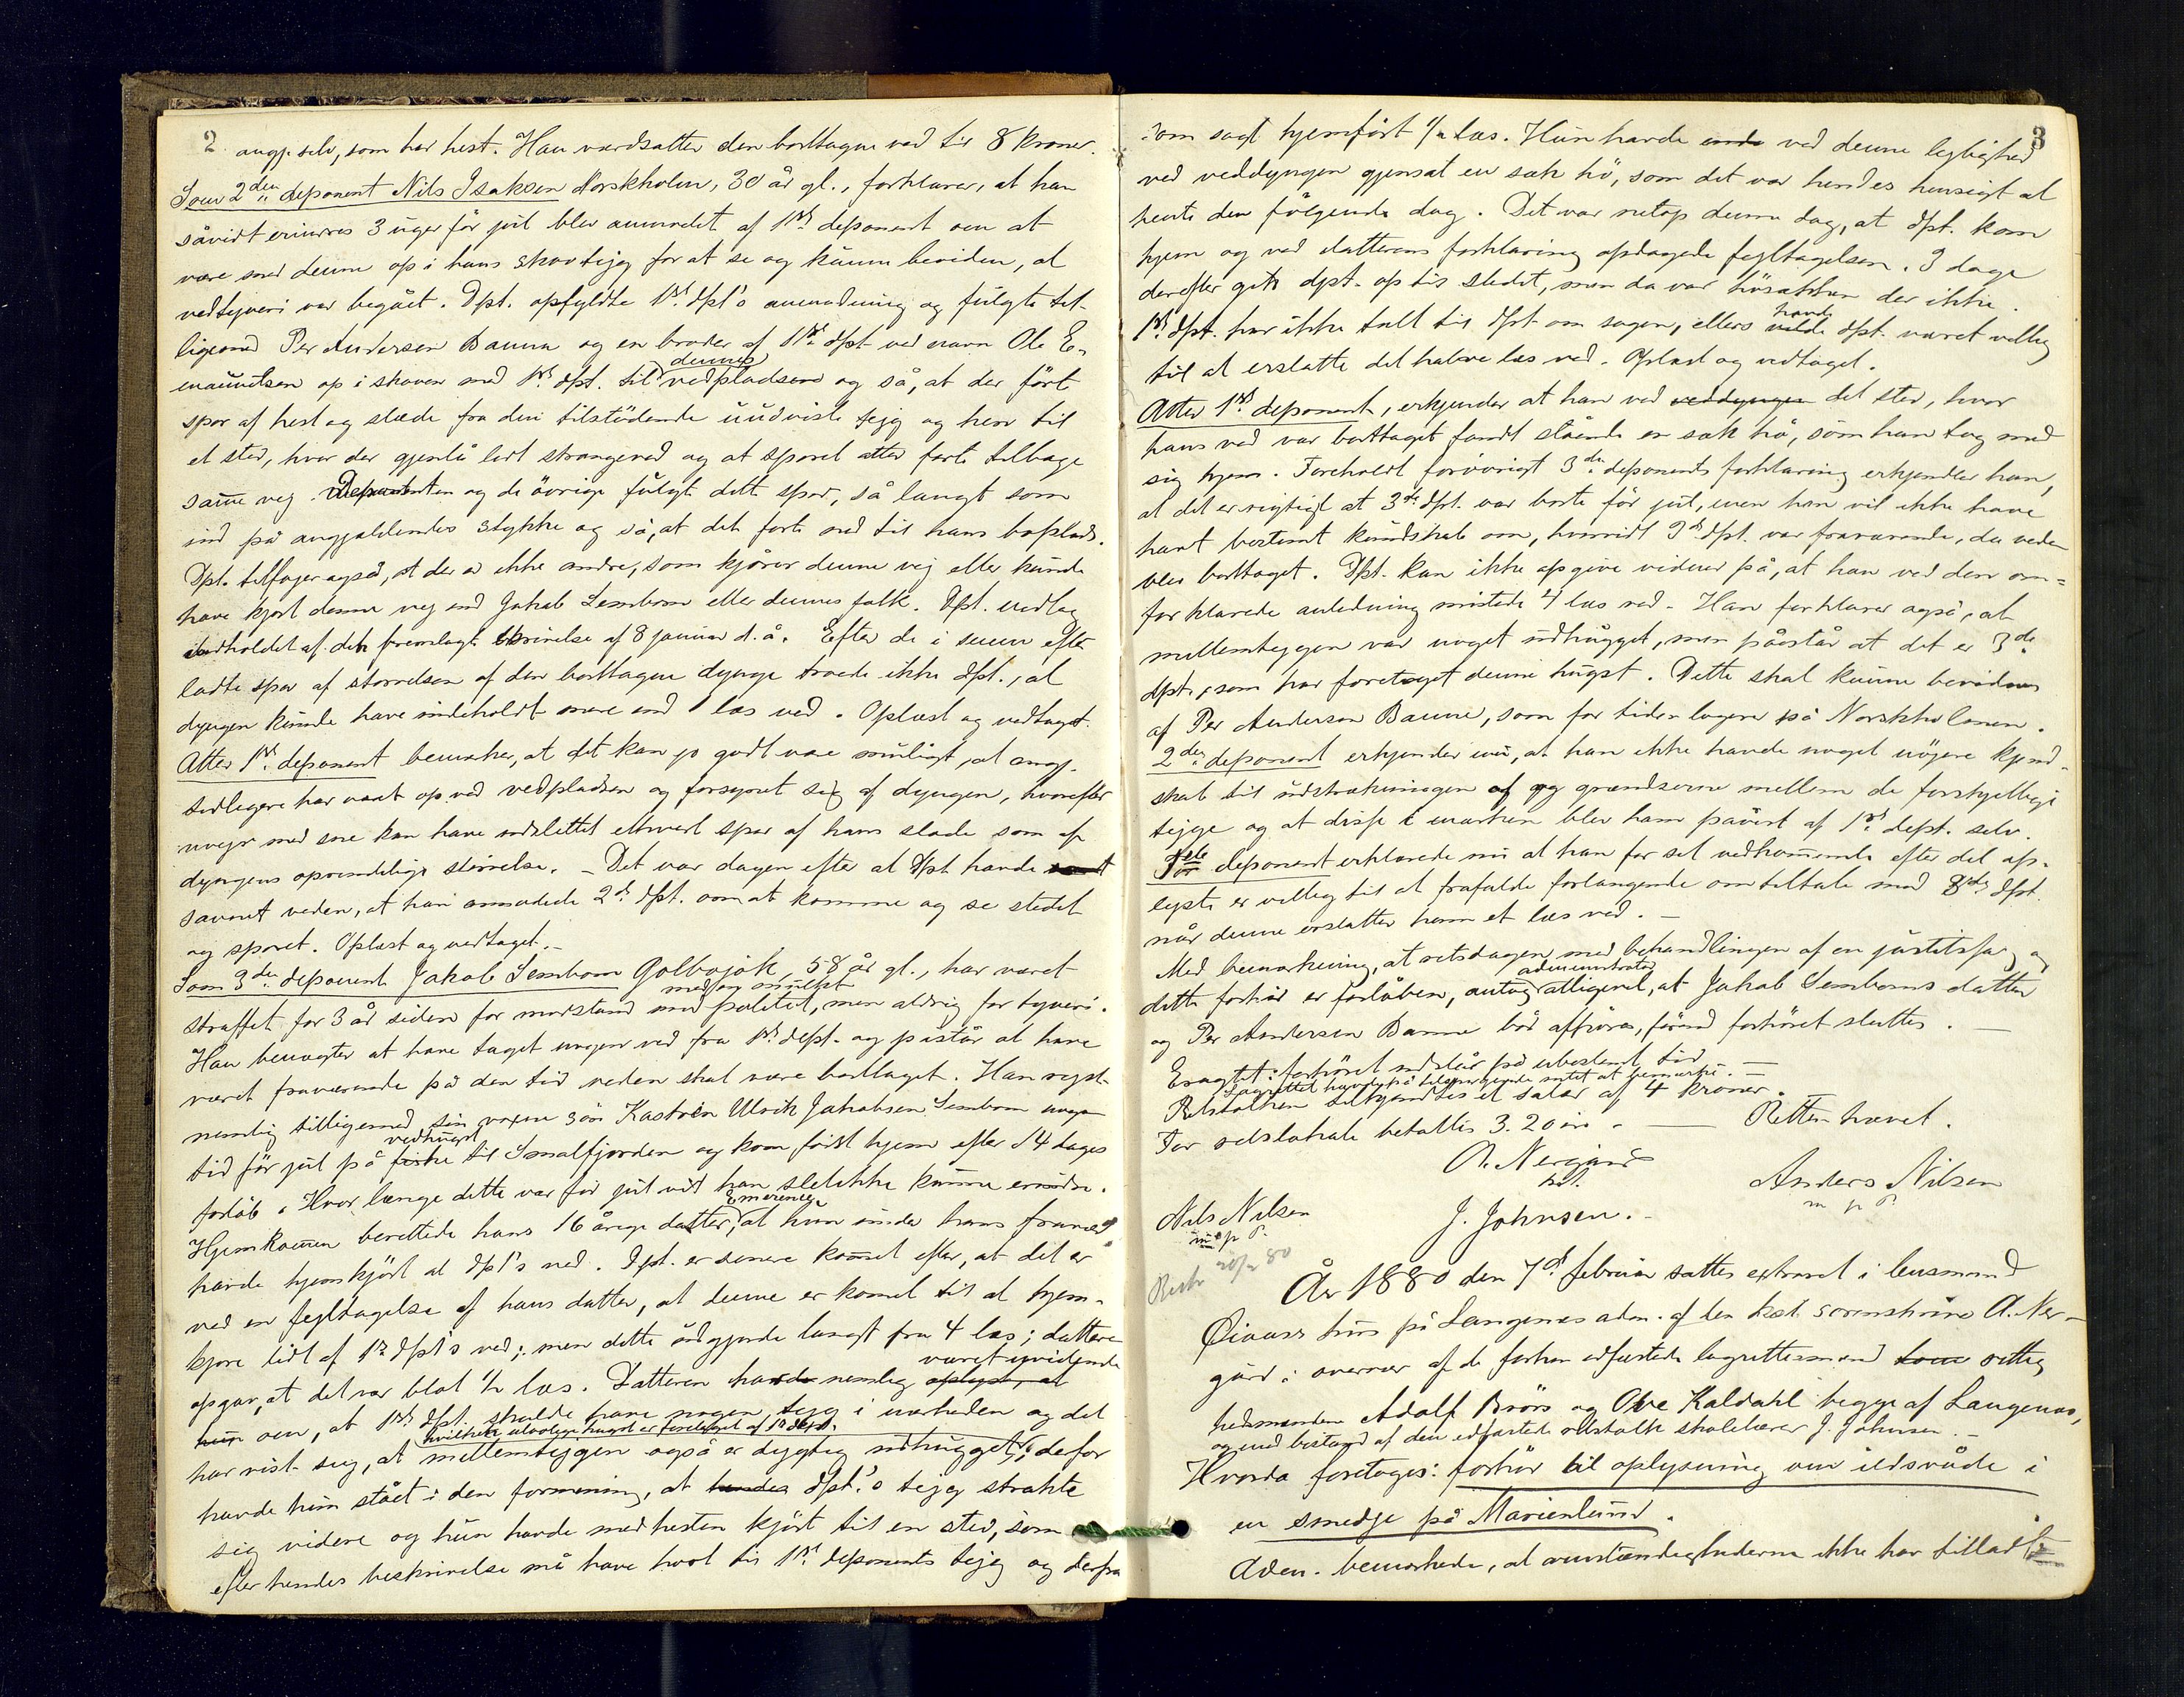 2
angj. selv, som har hest. Han værdsatter den borttagne ved til 8 kroner.
Som 2den deponent Nils Isaksen Norskholm, 30 år gl., forklarer, at han
såvidt erindres 3 uger før jul blev anmodet af 1ste deponent om at
være med denne op i hans skovteig for at se og kunne bevidne, at
vedtyveri var begået. Dpt. opfyldte 1ste dpt's anmodning og fulgte til-
ligemed Per Andersen Banne og en broder af 1ste dpt ved navn Ole E-
maunitsen op i skoven med 1ste dpt. til dennes vedpladsen og så, at der ført
spor af hest og slæde fra den tilstødende uudviste tejg og hen til
et sted, hvor der gjenlå lidt strangeved og at sporet atter førte tilbage
same vej. Deponenten og de øvrige fulgte dette spor, så langt som
ind på angjældendes stykke og så, at det førte ned til hans boplads.
Dpt. tilføjer også, at der er ikke andre, som kjører denne vej eller kunde
have kjørt denne vej end Jakob Sembom eller dennes folk. Dpt. vedtog
indholdet af den fremlagte skrivelse af 8 januar d. å. Efter de i sneen efter
ladte spor af størrelsen af den borttagne dynge troede ikke dpt., at
dyngen kunde have indeholdt mere end 1 læs ved. Oplæst og vedtaget.
Atter 1ste deponent bemærker, at det kan jo godt være muligt, at angj.
tidligere har været op ved vedpladsen og forsynet sig af dyngen, hvorefter
uvejr med sne kan have udslettet ethvert spor af hans slæde som af
dyngens oprindelige størrelse. – Det var dagen efter at dpt havde
savnet veden, at han anmodede 2de dpt. om at komme og se stedet
og sporet. Oplæst og vedtaget. –
Som 3die deponent Jakob Sembom Golbojok, 58 år gl., har været
straffet for 3 år siden med en mulkt for modstand mod politiet, men aldrig for tyveri.
Han benegter at have taget nogen ved fra 1ste dept. og påstår at have
været fraværende på den tid veden skal være borttaget. Han rejste
nemlig tilligemed sin voxne søn Kastrén Ulrik Jakobsen Sembom nogen
tid før jul på vedhugst til Smalfjorden og kom først hjem efter 14 dages
forløb. Hvor længe dette var før jul vidt han slet ikke kunne erindre.
Hjemkommen berettede hans 16 årige datter, Emerense at hun under hans fravær
havde hjemkjørt al dpt's ved. Dpt. er senere kommet efter, at det er
ved en fejltagelse af hans datter, at denne er kommet til at hjem-
kjøre lidt af 1ste dpt's ved; men dette udgjorde langt fra 4 læs; datteren
opgav, at det var blot 1/2 læs. Datteren havde nemlig været uvidende
om, at 1ste dpt. skulde have nogen tejg i nærheden og det
har vist sig, at mellemteggen også er dygtig udhugget, hvilken ulovlige hugst er foretaget af 1ste dept. derfor
havde hun stået i den formening, at dpt.'s tejg strakte
sig videre og hun havde med hesten kjørt til en sted, som
efter hendes beskrivelse må have hørt til 1ste deponents tejg og derfra
3
som sagt hjemført 1/2 læs. Hun havde ved denne leglighed
ved veddyngen gjensat en sæk hø, som det var hendes hensigt at
hente den følgende dag. Det var netop denne dag, at dpt. kom
hjem og ved datterens forklaring opdagede fejltagelsen. 3 dage
derefter gik dpt. op til stedet, men da var høsækken der ikke.
1ste dpt. har ikke talt til dpt om sagen, ellers havde dpt. været villig
til at erstatte det halve læs ved. Oplæst og vedtaget.
Atter 1ste deponent, erkjender at han ved veddyngen det sted, hvor
hans ved var borttaget fandt stående en sæk hø, som han tog med
sig hjem. Foreholdt forøvrigt 3die deponents forklaring erkjender han,
at det er rigtigt at 3die dpt. var borte før jul, men han vil ikke have
havt bestemt kundskab om, hvorvidt 3die dpt. var fraværende, da veden
blev borttaget. Dpt. kan ikke opgive vidner på, at han ved den om=
forklarede anledning mistede 4 læs ved. Han forklarer også, at
mellemteggen var noget udhugget, men påstår at det er 3die
dpt., som har foretaget denne hugst. Dette skal kunne bevidnes
af Per Andersen Banne, som for tiden logerer på Norskholmen.
2den deponent erkjender nu, at han ikke havde noget nøjere kjend-
skab til udstrækningen af og grændserne mellem de forskjellige
tejge og at disse i marken blev ham påvist af 1ste dept. selv.
1ste deponent erklærede nu at han for sit vedkommende efter det op-
lyste er villig til at frafalde forlangende om tiltale mod 3die dpt.
når denne erstatter ham et læs ved. –
Med bemærkning, at retsdagen med behandlingen af en justitssag og
dette forhør er forløben, antog administrator alligevel, at Jakob Semboms datter
og Per Andersen Banne bør afhøres, førend forhøret sluttes. –
Eragtet: forhøret udstår på ubestemt tid –
Lagrettet havde på tilspørgende intet at bemærke. –
Retstolken tilkjendtes et salær af 4 kroner.
For retslokale betaltes 3.20 øre. — Retten hævet.
A. Nergård
kst.
Anders Nilsen
m p P.
Nils Nilsen
m p P.
J. Johnsen. –
20/2 80
År 1880 den 7de februar sattes extraret i lensmand
Qivars hus på Langenes adm. af den kst. sorenskriver A. Ner-
gård i overvær af de forhen edfæstede lagrettesmænd
Adolf Brörs og Ole Kaldahl begge af Langenes,
og med bistand af den edfæstede retstolk skolelærer J. Johnsen. –
Hvorda foretoges: forhør til oplysning om ildsvåde i
en smedje på Marienlund.
Adm. bemærkede, at omstændighederne ikke har tilladt